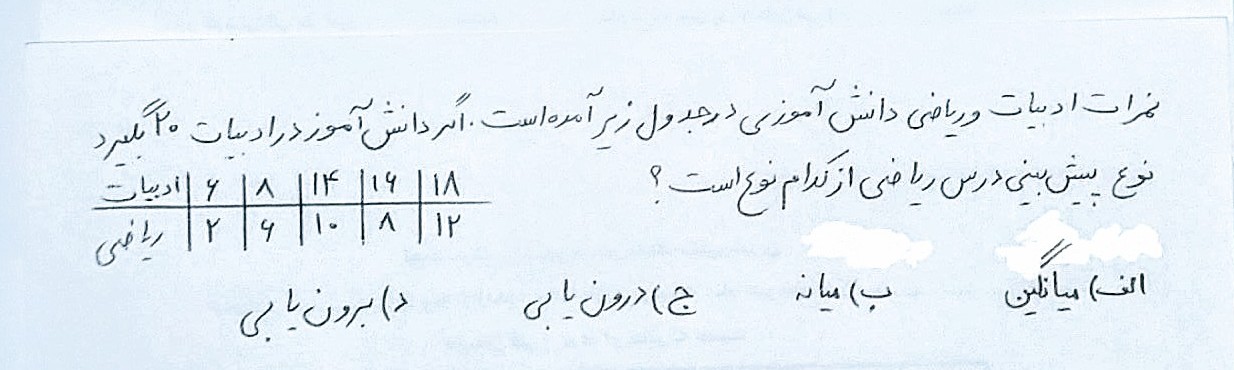 نمرات ادبیات و ریاضی دانش آموزی در جدول زیر آمده است. اگر دانش آموز در ادبیات ۲۰ بگیرد
نوع پیش بینی درس ریاضی از کدام نوع است ؟
ادبیات | ۶ | ۸ | ۱۴ | ۱۶ | ۱۸
ریاضی | ۲ | ۶ | ۱۰ | ۸ | ۱۲
الف) میانگین ب) میانه ج) درون یابی د) برون یابی